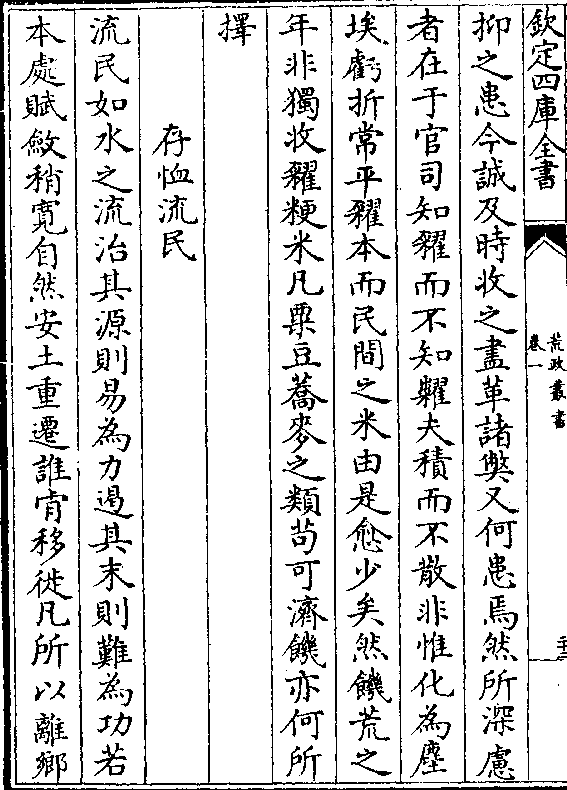 欽定四庫全書
荒政叢書
卷一
抑之患今誠及時收之盡革諸弊又何患焉然所深慮
者在于官司知糴而不知糶夫積而不散非惟化為塵
埃虧折常平糴本而民間之米由是愈少矣然饑荒之
年非獨收糴粳米凡粟豆蕎麥之類苟可濟饑亦何所
擇
存恤流民
流民如水之流治其源則易為力遏其末則難為功若
本處賦斂稍寬自然安土重遷誰肯移徙凡所以離鄉